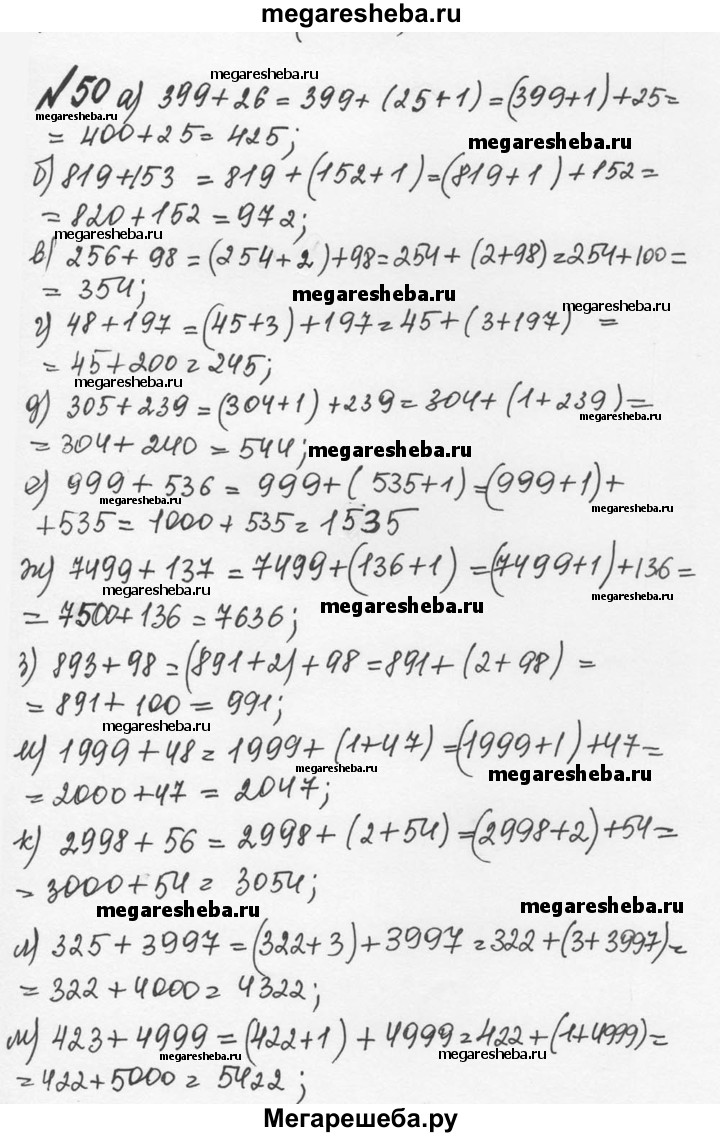 megaresheba.ru
megaresheba.ru
№50 а) 399+26 = 399+ (25+1) = (399+1)+25=
megaresheba.ru
= 400+25 = 425;
megaresheba.ru
б) 819+153 = 819 + (152+1) = (819+1) + 152 =
= 820+152 = 972;
megaresheba.ru
megaresheba.ru
в) 256+ 98 = (254+2)+98 = 254+ (2+98) = 254+100 =
= 354;
megaresheba.ru
megaresheba.ru
г) 48+197 = (45+3)+197 = 45+(3+197) =
= 45+200 = 245;
megaresheba.ru
megaresheba.ru
д) 305+239 = (304+1) +239 = 304+ (1+239) =
= 304+ 240 = 544;
megaresheba.ru
е) 999+ 536 = 999+( 535+1) = (999+1) +
megaresheba.ru
megaresheba.ru
+535 = 1000+ 535 = 1535
ж) 7499+137 = 7499+(136+1) = (7499+1)+136 =
megaresheba.ru
megaresheba.ru
= 7500+136 = 7636;
megaresheba.ru
з) 893+98 = (891+2)+ 98 = 891+ (2+98) =
= 891+ 100 = 991;
megaresheba.ru
и) 1999+48 = 1999+ (1+47) = (1999+1) +47 =
megaresheba.ru
megaresheba.ru
= 2000+47 = 2047;
к) 2998+ 56 = 2998+ (2+54) = (2998+2)+54 =
megaresheba.ru
= 3000+54 = 3054;
megaresheba.ru
megaresheba.ru
л) 325+3997 = (322+3)+3997 = 322+(3+3997) =
= 322+4000 = 4322;
м) 423+4999 = (422+1) + 4999 = 422+ (1+4999) =
megaresheba.ru
megaresheba.ru
= 422+5000 = 5422;
megaresheba.ru
Мегарешеба.ру